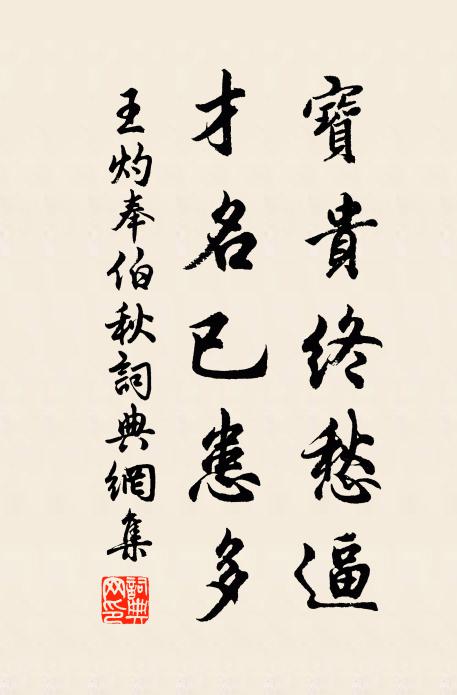 寶貴終愁逼
才名已患多
王灼奉伯秋詞典網集
詞典網印